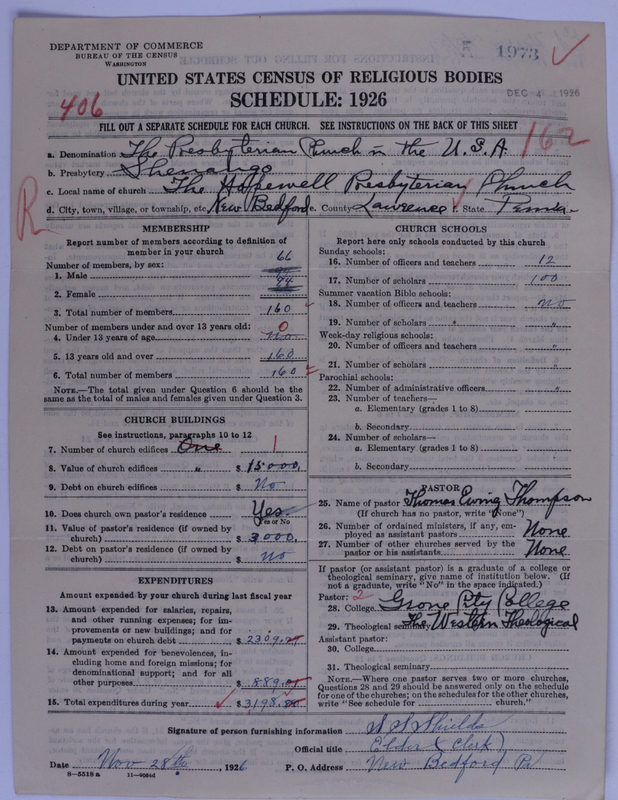 DEPARTMENT OF COMMERCE
BUREAU OF THE CENSUS
WASHINGTON
5 1973
UNITED STATES CENSUS OF RELIGIOUS BODIES
SCHEDULE: 1926
DEC 4 1926
406
FILL OUT A SEPARATE SCHEDULE FOR EACH CHURCH. SEE INSTRUCTIONS ON THE BACK OF THIS SHEET
162
a. Denomination The Presbyterian Church in the U.S.A.
b. Presbytery Shenango
c. Local name of church The Hopewell Presbyterian Church
d. City, town, village, or township, etc. New Bedford e. County Lawrence f. State Penna.
R
MEMBERSHIP
Report number of members according to definition of member in your church
Number of members, by sex:
1. Male 66
2. Female 94
3. Total number of members 160
Number of members under and over 13 years old:
4. Under 13 years of age No 0
5. 13 years old and over 160
6. Total number of members 160
NOTE.—The total given under Question 6 should be the same as the total of males and females given under Question 3.
CHURCH BUILDINGS
See instructions, paragraphs 10 to 12
7. Number of church edifices One 1
8. Value of church edifices " $ 15000.
9. Debt on church edifices $ No
10. Does church own pastor's residence Yes
Yes or No
11. Value of pastor's residence (if owned by church) $ 3000.
12. Debt on pastor's residence (if owned by church) $ No
EXPENDITURES
Amount expended by your church during last fiscal year
13. Amount expended for salaries, repairs, and other running expenses; for improvements or new buildings; and for payments on church debt $ 2309.
14. Amount expended for benevolences, including home and foreign missions; for denominational support; and for all other purposes $ 889.
15. Total expenditures during year $ 3198.
CHURCH SCHOOLS
Report here only schools conducted by this church
Sunday schools:
16. Number of officers and teachers 12
17. Number of scholars 100
Summer vacation Bible schools:
18. Number of officers and teachers no
19. Number of scholars " "
Week-day religious schools:
20. Number of officers and teachers "
21. Number of scholars "
Parochial schools:
22. Number of administrative officers "
23. Number of teachers—
a. Elementary (grades 1 to 8)
b. Secondary
24. Number of scholars—
a. Elementary (grades 1 to 8)
b. Secondary
PASTOR
25. Name of pastor Thomas Ewing Thompson
(If church has no pastor, write "None")
26. Number of ordained ministers, if any, employed as assistant pastors None
27. Number of other churches served by the pastor or his assistants None
If pastor (or assistant pastor) is a graduate of a college or theological seminary, give name of institution below. (If not a graduate, write "No" in the space indicated.)
Pastor: 2
28. College Grove City College
29. Theological seminary The Western Theological
Assistant pastor:
30. College
31. Theological seminary
NOTE.—Where one pastor serves two or more churches, Questions 28 and 29 should be answered only on the schedule for one of the churches; on the schedules for the other churches, write "See schedule for church."
Signature of person furnishing information S. S. Shields
Official title Elder (Clerk)
Date Nov 28th, 1926 P. O. Address New Bedford Pa
8—5518 a 11—9064d